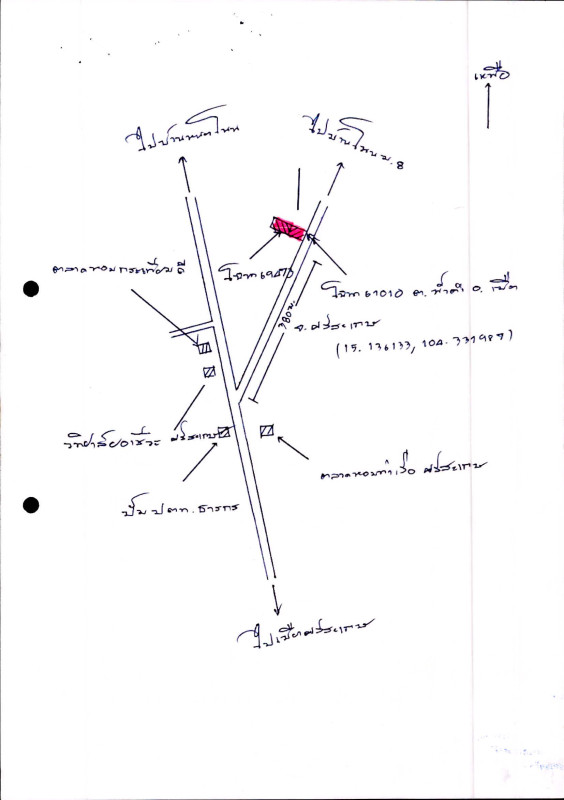 เหนือ
ไปบ้านหนองโนน
ไปบ้านโนน ม.8
ตลาดหอมกระเทียมดี
โฉนด 69470
โฉนด 61010 ต.น้ำคำ อ.เมือง
จ.ศรีสะเกษ
(15.136133, 104.331989)
380ม.
วิทยาลัยอาชีวะ ศรีสะเกษ
ตลาดหอมท่าเรือ ศรีสะเกษ
ปั๊ม ปตท. ธารกร
ไปเมืองศรีสะเกษ